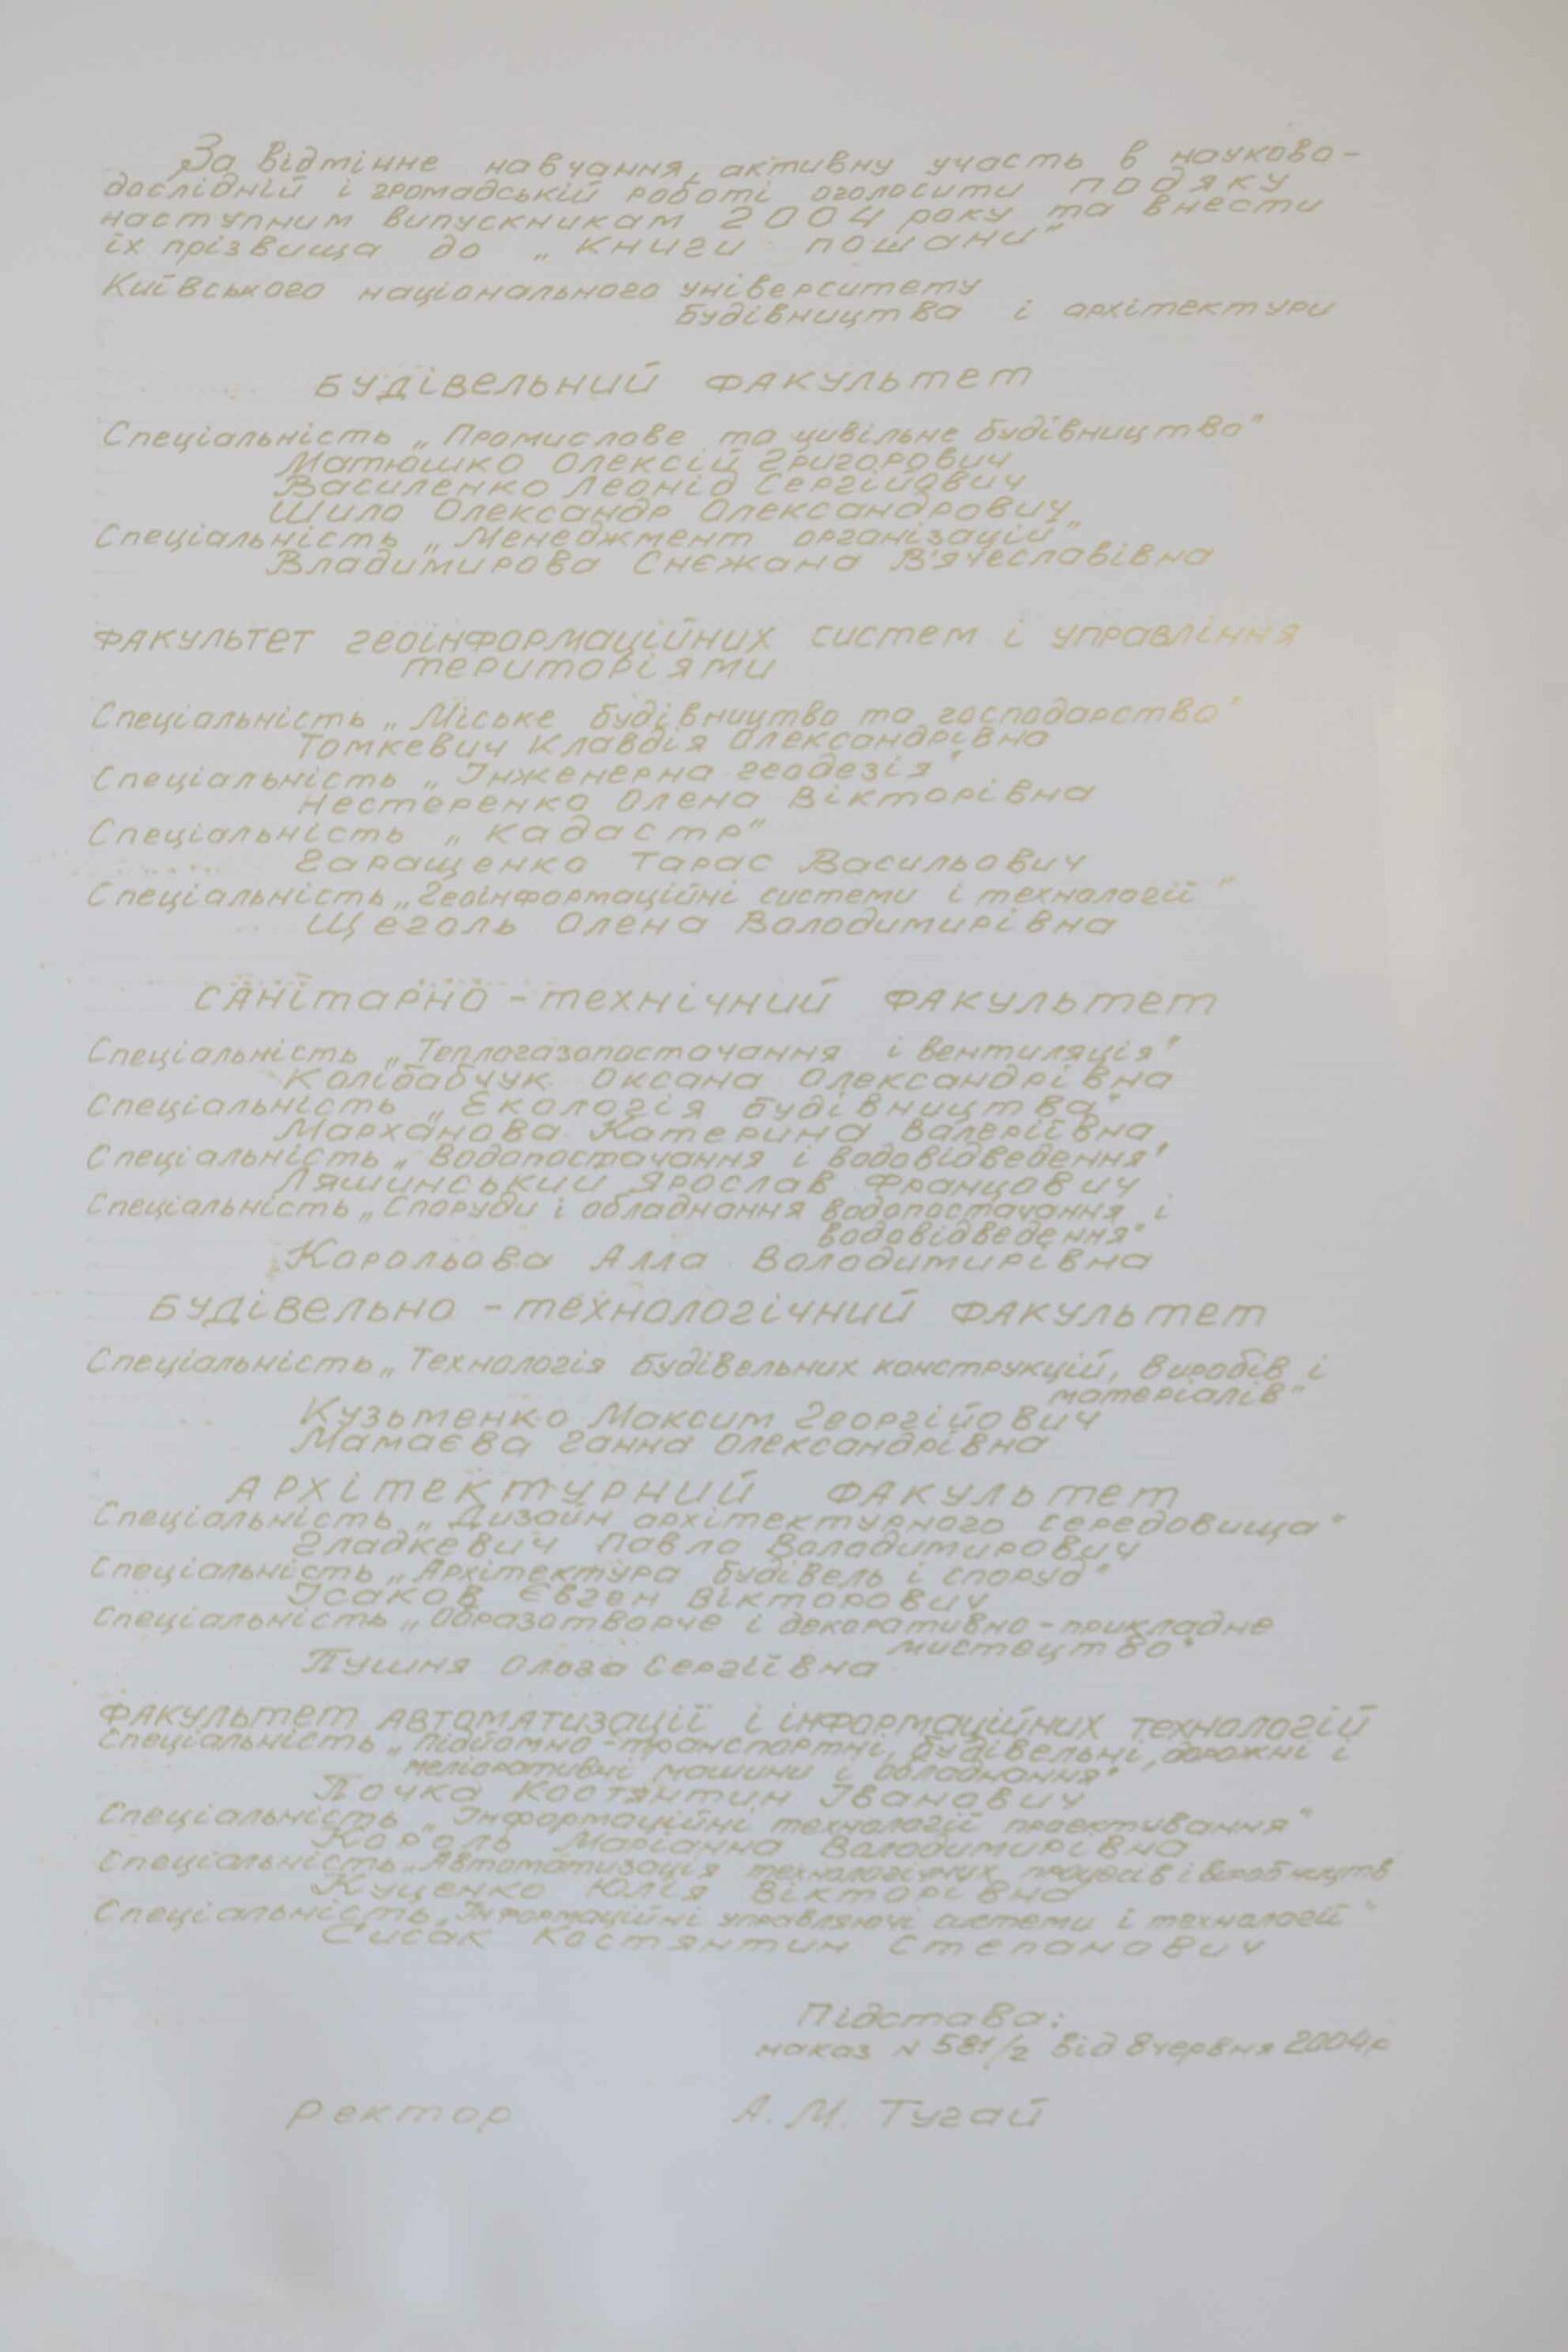 За відмінне навчання, активну участь в науково-
дослідній і громадській роботі оголосити подяку
наступним випускникам 2004 року та внести
їх прізвища до „книги пошани"
Київського національного університету
будівництва і архітектури
Будівельний факультет
Спеціальність „Промислове та цивільне будівництво"
Матюшко Олексій Григорович
Василенко Леонід Сергійович
Шило Олександр Олександрович
Спеціальність „Менеджмент організацій"
Владимирова Снєжана В'ячеславівна
Факультет геоінформаційних систем і управління
територіями
Спеціальність „Міське будівництво та господарство"
Томкевич Клавдія Олександрівна
Спеціальність „Інженерна геодезія"
Нестеренко Олена Вікторівна
Спеціальність „кадастр"
Гаращенко Тарас Васильович
Спеціальність „Геоінформаційні системи і технології"
Щеголь Олена Володимирівна
Санітарно-технічний факультет
Спеціальність „Теплогазопостачання і вентиляція"
Колібабчук Оксана Олександрівна
Спеціальність „Екологія будівництва"
Марханова Катерина Валеріївна
Спеціальність „Водопостачання і водовідведення"
Ляшинський Ярослав Францович
Спеціальність „Споруди і обладнання водопостачання і
водовідведення"
Корольова Алла Володимирівна
Будівельно-технологічний факультет
Спеціальність „Технологія будівельних конструкцій, виробів і
матеріалів"
Кузьменко Максим Георгійович
Мамаєва Ганна Олександрівна
Архітектурний факультет
Спеціальність „Дизайн архітектурного середовища"
Гладкевич Павло Володимирович
Спеціальність „Архітектура будівель і споруд"
Ісаков Євген Вікторович
Спеціальність „Образотворче і декоративно-прикладне
мистецтво"
Пушня Ольга Сергіївна
Факультет автоматизації і інформаційних технологій
Спеціальність „Підйомно-транспортні, будівельні, дорожні і
меліоративні машини і обладнання"
Почка Костянтин Іванович
Спеціальність „Інформаційні технології проектування"
Король Маріанна Володимирівна
Спеціальність „Автоматизація технологічних процесів і виробництв
Куценко Юлія Вікторівна
Спеціальність „Інформаційні управляючі системи і технології"
Сисак Костянтин Степанович
Підстава:
наказ N 581/2 від 8 червня 2004р
Ректор А. М. Тугай